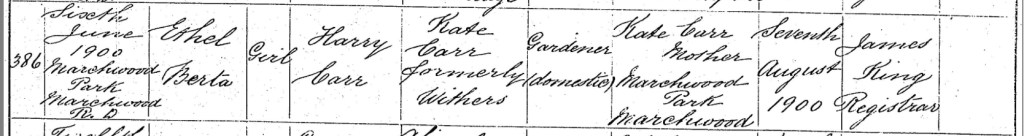 386
Sixeth
June
1900
Marchwood
Park
Marchwood
R. D
Ethel
Berta
Girl
Harry
Carr
Kate
Carr
formerly
Withers
Gardener
(domestic)
Kate Carr
Mother
Marchwood
Park
Marchwood
Seventh
August
1900
James
King
Registrar
Twelfth